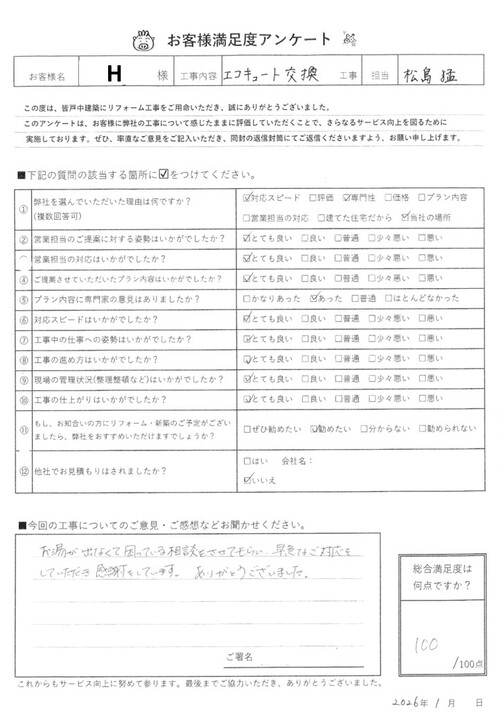 お客様満足度アンケート
お客様名 H 様 工事内容 エコキュート交換 工事 担当 松島 猛
この度は、皆戸中建築にリフォーム工事をご用命いただき、誠にありがとうございました。
このアンケートは、お客様に弊社の工事について感じたままに評価していただくことで、さらなるサービス向上を図るために
実施しております。ぜひ、率直なご意見をご記入いただき、同封の返信封筒にてご返信くださいますよう、お願い申し上げます。
■下記の質問の該当する箇所に☑をつけてください。
① 弊社を選んでいただいた理由は何ですか? (複数回答可) ☑対応スピード □評価 ☑専門性 □価格 □プラン内容
□営業担当の対応 □建てた住宅だから ☑当社の場所
② 営業担当のご提案に対する姿勢はいかがでしたか? ☑とても良い □良い □普通 □少々悪い □悪い
営業担当の対応はいかがでしたか? ☑とても良い □良い □普通 □少々悪い □悪い
④ ご提案させていただいたプラン内容はいかがでしたか? ☑とても良い □良い □普通 □少々悪い □悪い
⑤ プラン内容に専門家の意見はありましたか? □かなりあった ☑あった □普通 □ほとんどなかった
⑥ 対応スピードはいかがでしたか? ☑とても良い □良い □普通 □少々悪い □悪い
⑦ 工事中の仕事への姿勢はいかがでしたか? ☑とても良い □良い □普通 □少々悪い □悪い
⑧ 工事の進め方はいかがでしたか? ☑とても良い □良い □普通 □少々悪い □悪い
⑨ 現場の管理状況(整理整頓など)はいかがでしたか? ☑とても良い □良い □普通 □少々悪い □悪い
⑩ 工事の仕上がりはいかがでしたか? ☑とても良い □良い □普通 □少々悪い □悪い
⑪ もし、お知合いの方にリフォーム・新築のご予定がござい
ましたら、弊社をおすすめいただけますでしょうか? □ぜひ勧めたい ☑勧めたい □分からない □勧められない
⑫ 他社でお見積もりはされましたか? □はい 会社名:
☑いいえ
■今回の工事についてのご意見・ご感想などお聞かせください。
お湯が出なくて困っている相談をさせてもらい、早急なご対応を
していただき感謝をしています。 ありがとうございました。
ご署名
総合満足度は
何点ですか?
100
/100点
これからもサービス向上に努めて参ります。最後までご協力いただき、ありがとうございました。
2026年 1月 日